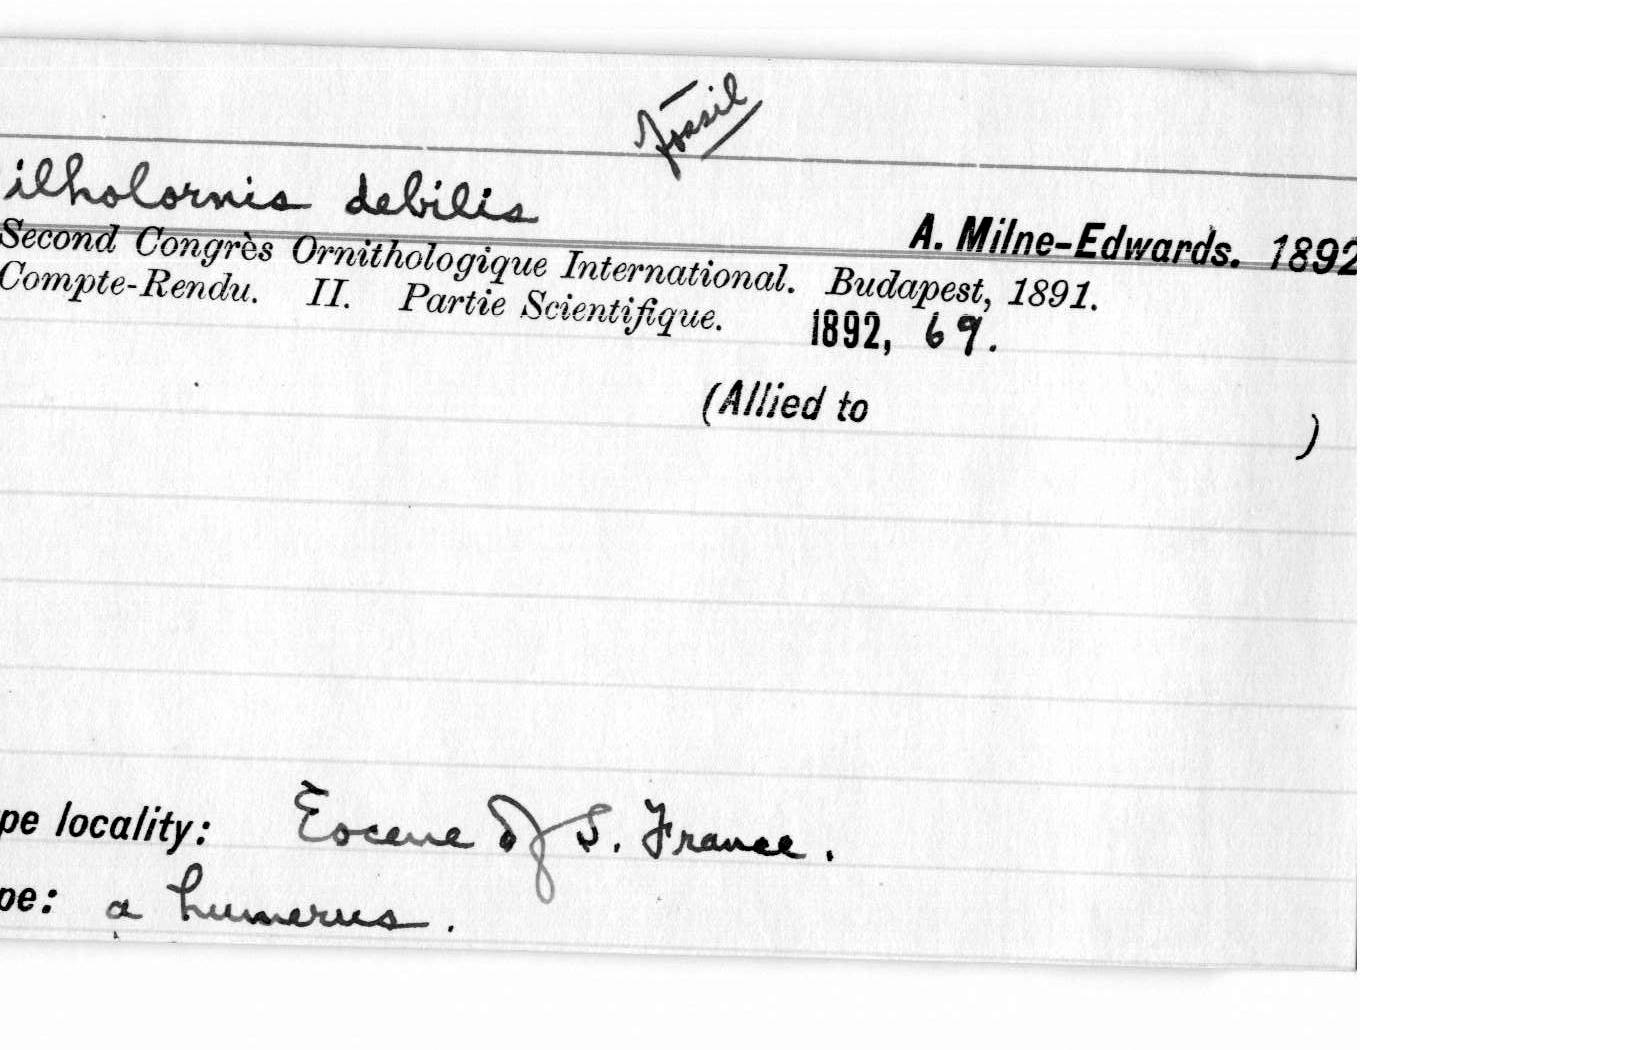 fossil
ilholornis debilis
A. Milne-Edwards. 1892
Second Congrès Ornithologique International. Budapest, 1891.
Compte-Rendu. II. Partie Scientifique. 1892, 69.
(Allied to )
pe locality: Eocene of S. France.
pe: a humerus.